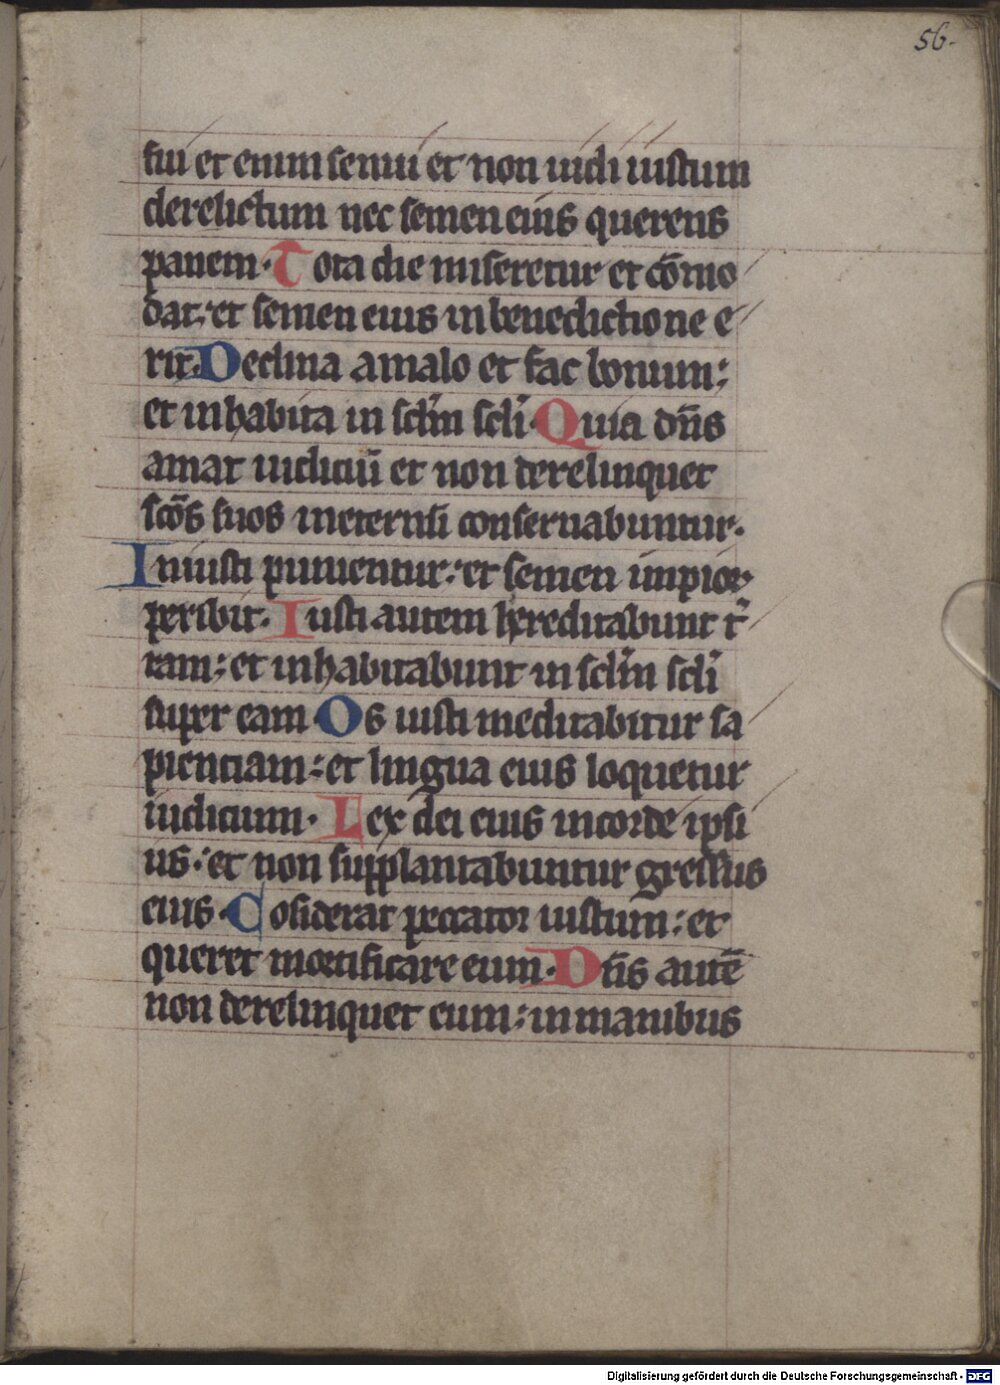 56.
fui et enim senui et non uidi iustum
derelictum nec semen eius querens
panem. Tota die miseretur et cōmo
dat: et semen eius in benedictione e
rit. Declina a malo et fac bonum:
et inhabita in sclm̄ scli̅ Quia dn̄s
amat iudiciū et non derelinquet
scōs suos in eternū conseruabuntur.
Iniusti punientur: et semen impioꝝ
peribit. Iusti autem hereditabunt t̄r
ram: et inhabitabunt in sclm̄ scli̅
super eam Os iusti meditabitur sa
pienciam: et lingua eius loquetur
iudicium. Lex dei eius in corde ipsi
us: et non supplantabuntur gressus
eius. Cosiderat peccator iustum: et
queret mortificare eum. Dn̄s autē
non derelinquet eum: in manibus
Digitalisierung gefördert durch die Deutsche Forschungsgemeinschaft - DFG